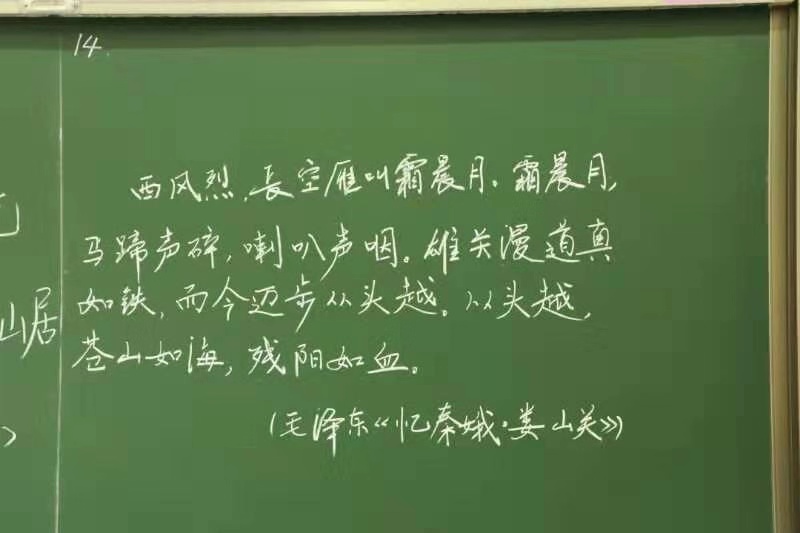 14.
西风烈,长空雁叫霜晨月。霜晨月,
马蹄声碎,喇叭声咽。雄关漫道真
如铁,而今迈步从头越。从头越,
苍山如海,残阳如血。
(毛泽东《忆秦娥·娄山关》)
山居